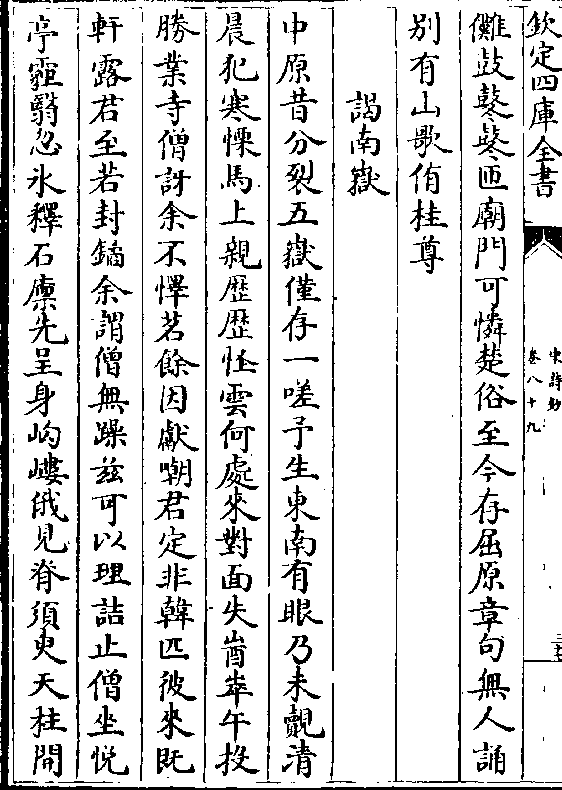 欽定四庫全書
宋詩鈔
卷八十九
儺鼓鼕鼕匝廟門可憐楚俗至今存屈原章句無人誦
别有山歌侑桂尊
謁南嶽
中原昔分裂五嶽僅存一嗟予生東南有眼乃未覿清
晨犯寒慄馬上親歴歴怪雲何處來對面失崷崪午投
勝業寺僧訝余不懌茗餘因獻嘲君定非韓匹彼來旣
軒露君至若封鐍余謂僧無躁兹可以理詰止僧坐悦
亭霾翳忽氷釋石廩先呈身岣嶁俄見脊須臾天柱開